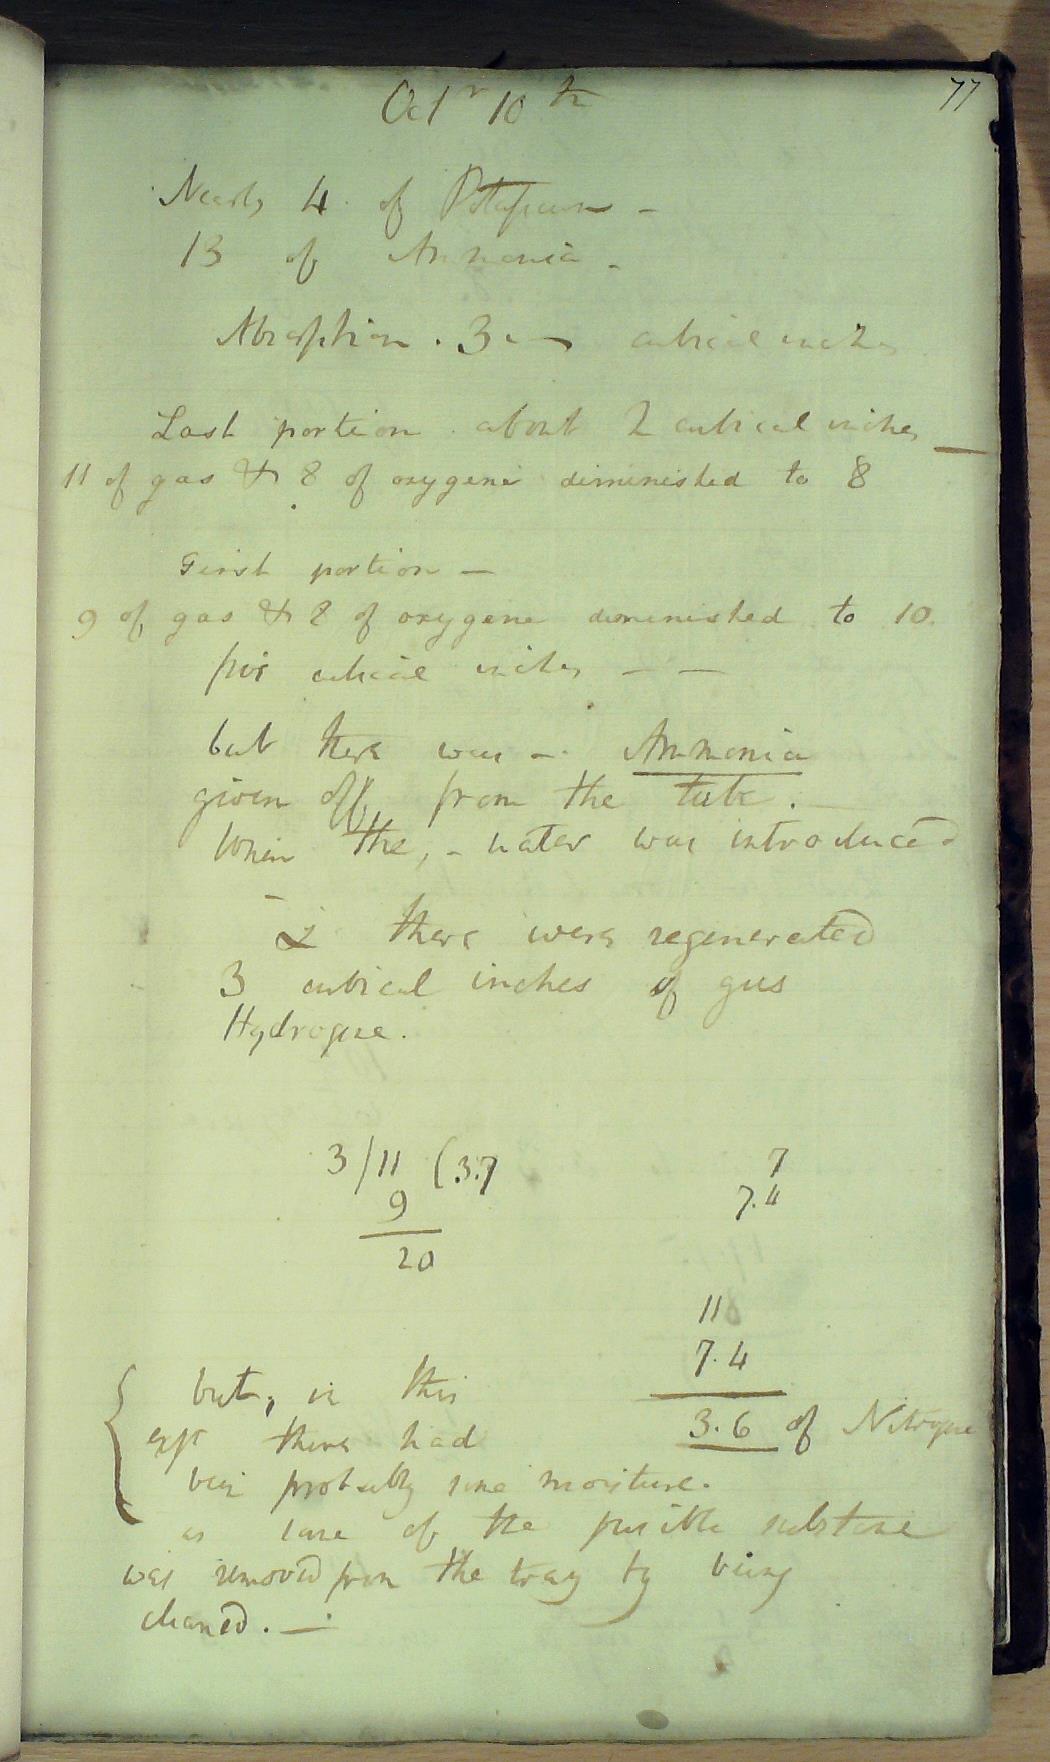 77
Octr 10th
Nearly 4 of Potassium -
13 of Ammonia -
Absorption . 3 cubical inches
Last portion about 2 cubical inches —
11 of gas & 8 of oxygene diminished to 8
First portion —
9 of gas & 8 of oxygene diminished to 10.
five cubical inches — —
but there was - Ammonia
given off from the tube . —
When the, - water was introduced
& there were regenerated
3 cubical inches of gas
Hydrogene.
3/11 (3.7
9
20
7
7.4
11
7.4
3.6 of Nitrogene
but, in this
expt there had
been probably some moisture.
as some of the fusible substance
was removed from the tray by being
cleaned. —